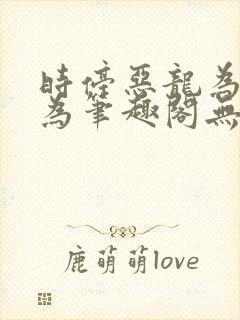 時停惡龍為
為筆趣閣無
鹿萌萌love